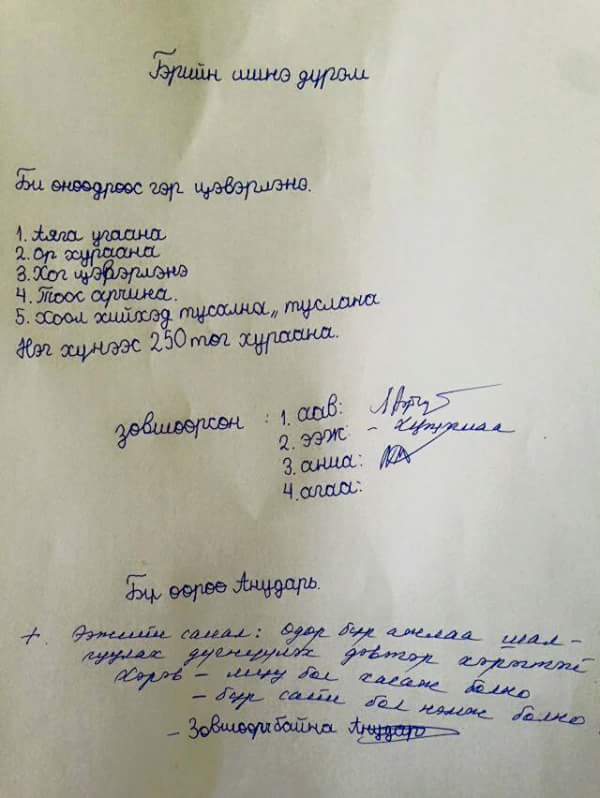 Гэрийн шинэ дүрэм
Би өнөөдрөөс гэр цэвэрлэнэ.
1. Аяга угаана
2. Ор хураана
3. Хог цэвэрлэнэ
4. Тоос арчина.
5. Хоол хийхэд тусална,, туслана
Нэг хүнээс 250 төг хураана.
зөвшөөрсөн : 1. аав:
2. ээж: -
3. аниа:
4. агаа:
Би өөрөө Анударь.
+. Ээжийн санал: Өдөр бүр ажлаа шал-
гуулах дүгнүүлэх дэвтэр хэрэгтэй
Хэрэв - муу бол хасаж болно
- бүр сайн бол нэмж болно.
- Зөвшөөрч байна Анударь